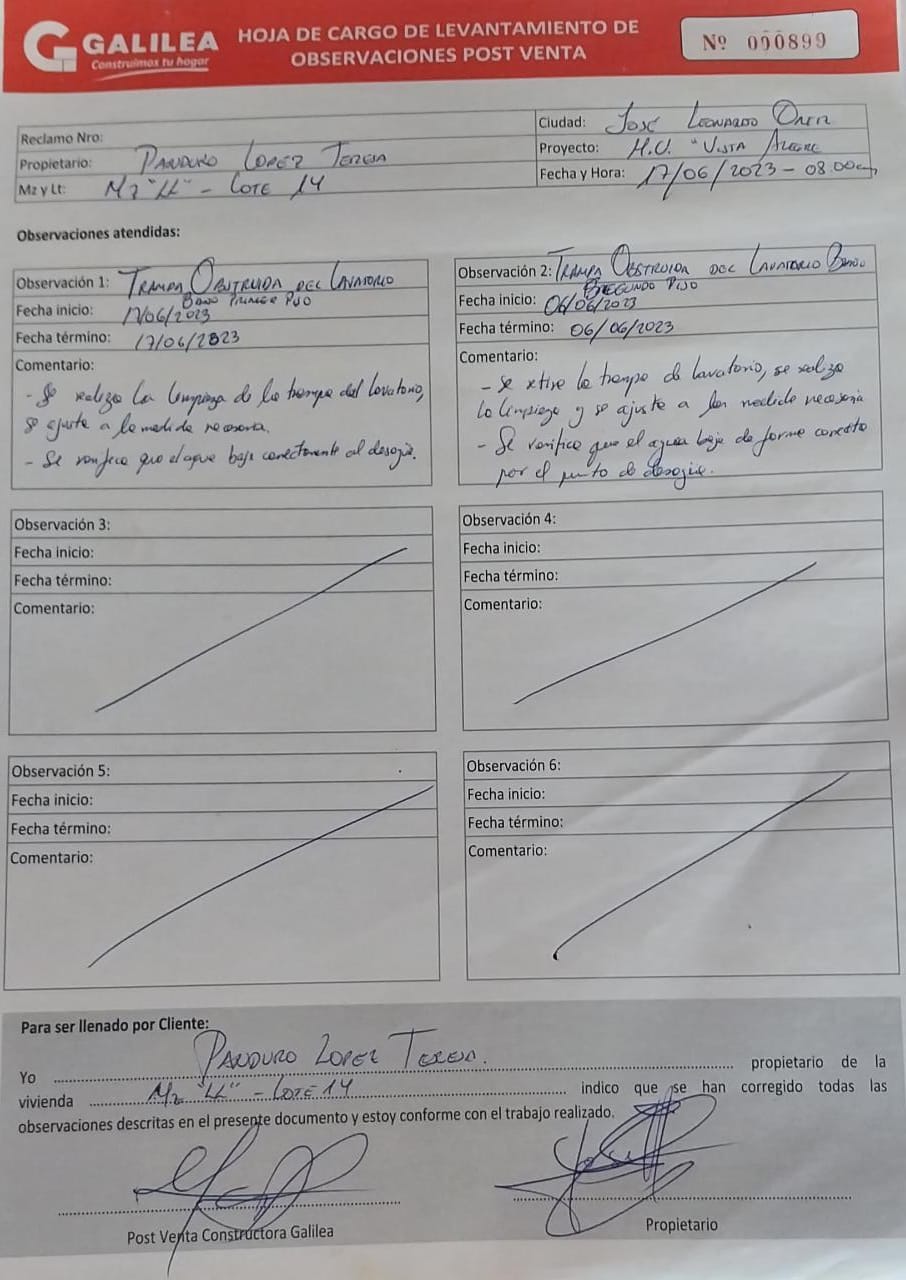 GALILEA
Construimos tu hogar
HOJA DE CARGO DE LEVANTAMIENTO DE
OBSERVACIONES POST VENTA
Nº 000899
Reclamo Nro:
Propietario: PANDURO LOPEZ TERESA
Mz y Lt: Mz "LL" - LOTE 14
Ciudad: JOSÉ LEONARDO ORTIZ
Proyecto: H.U. "VISTA ALEGRE
Fecha y Hora: 17/06/2023 - 08:00am
Observaciones atendidas:
Observación 1: TRAMPA OBSTRUIDA DEL LAVATORIO
BAÑO PRIMER PISO
Fecha inicio: 17/06/2023
Fecha término: 17/06/2023
Comentario:
- Se realizo la limpieza de la trampa del lavatorio,
se ajusta a la medida necesaria.
- Se verifica que el agua baje correctamente al desagüe.
Observación 2: TRAMPA OBSTRUIDA DEL LAVATORIO BAÑO
SEGUNDO PISO
Fecha inicio: 06/06/2023
Fecha término: 06/06/2023
Comentario:
- Se retira la trampa de lavatorio, se realizo
la limpieza y se ajusta a la medida necesaria
- Se verifico que el agua baje de forma correcta
por el punto de desagüe.
Observación 3:
Fecha inicio:
Fecha término:
Comentario:
Observación 4:
Fecha inicio:
Fecha término:
Comentario:
Observación 5:
Fecha inicio:
Fecha término:
Comentario:
Observación 6:
Fecha inicio:
Fecha término:
Comentario:
Para ser llenado por Cliente:
Yo PANDURO LOPEZ TERESA. propietario de la
vivienda Mz "LL" - LOTE 14 indico que se han corregido todas las
observaciones descritas en el presente documento y estoy conforme con el trabajo realizado.
Post Venta Constructora Galilea
Propietario